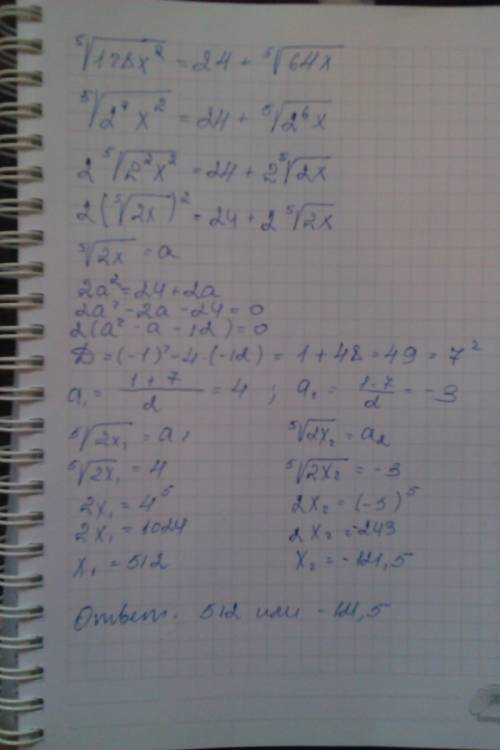 ⁵√128x² = 24 + ⁵√64x
⁵√2⁷x² = 24 + ⁵√2⁶x
2 ⁵√2²x² = 24 + 2 ⁵√2x
2(⁵√2x)² = 24 + 2 ⁵√2x
⁵√2x = a
2a² = 24 + 2a
2a² - 2a - 24 = 0
2(a² - a - 12) = 0
D = (-1)² - 4·(-12) = 1 + 48 = 49 = 7²
a₁ = (1+7)/2 = 4 ; a₂ = (1-7)/2 = -3
⁵√2x₁ = a₁ ⁵√2x₂ = a₂
⁵√2x₁ = 4 ⁵√2x₂ = -3
2x₁ = 4⁵ 2x₂ = (-3)⁵
2x₁ = 1024 2x₂ = -243
x₁ = 512 x₂ = -121,5
Ответ: 512 или -121,5